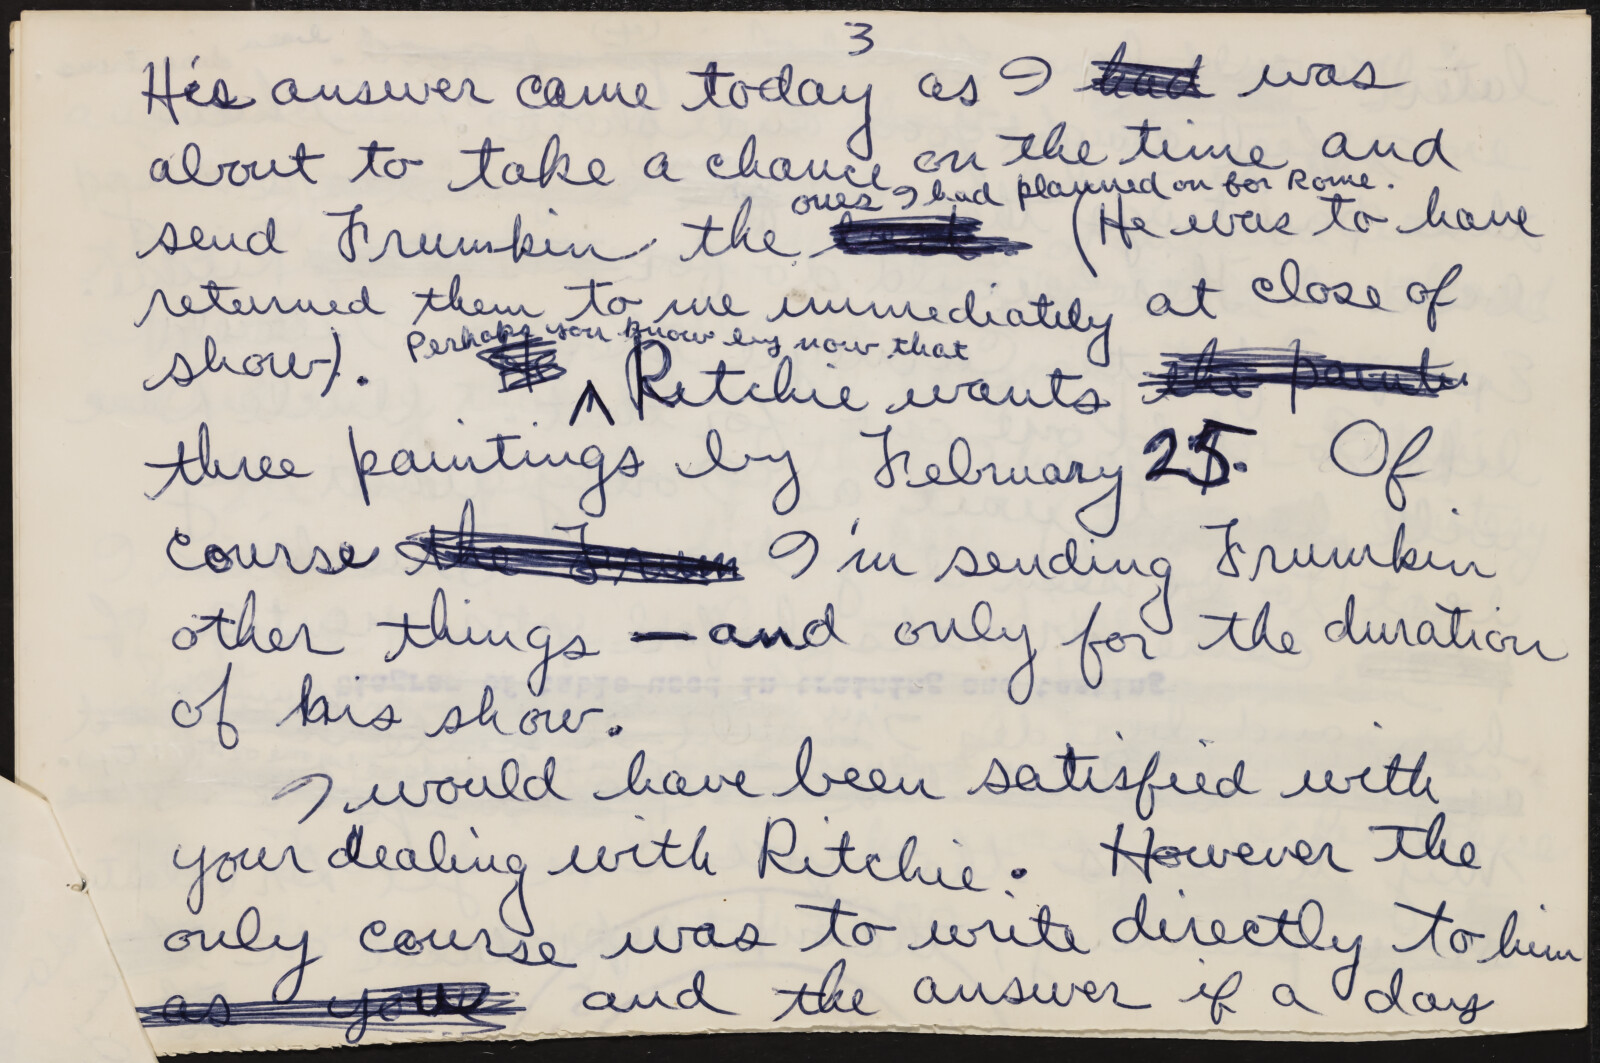 3
His answer came today as I had was
about to take a chance on the time and
ones I had planned on for Rome.
send Frumkin the (He was to have
returned them to me immediately at close of
show). Perhaps you know by now that
^ Ritchie wants the paints
three paintings by February 25. Of
course the Frum I'm sending Frumkin
other things — and only for the duration
of his show.
I would have been satisfied with
your dealing with Ritchie. However the
only course was to write directly to him
as your and the answer if a day